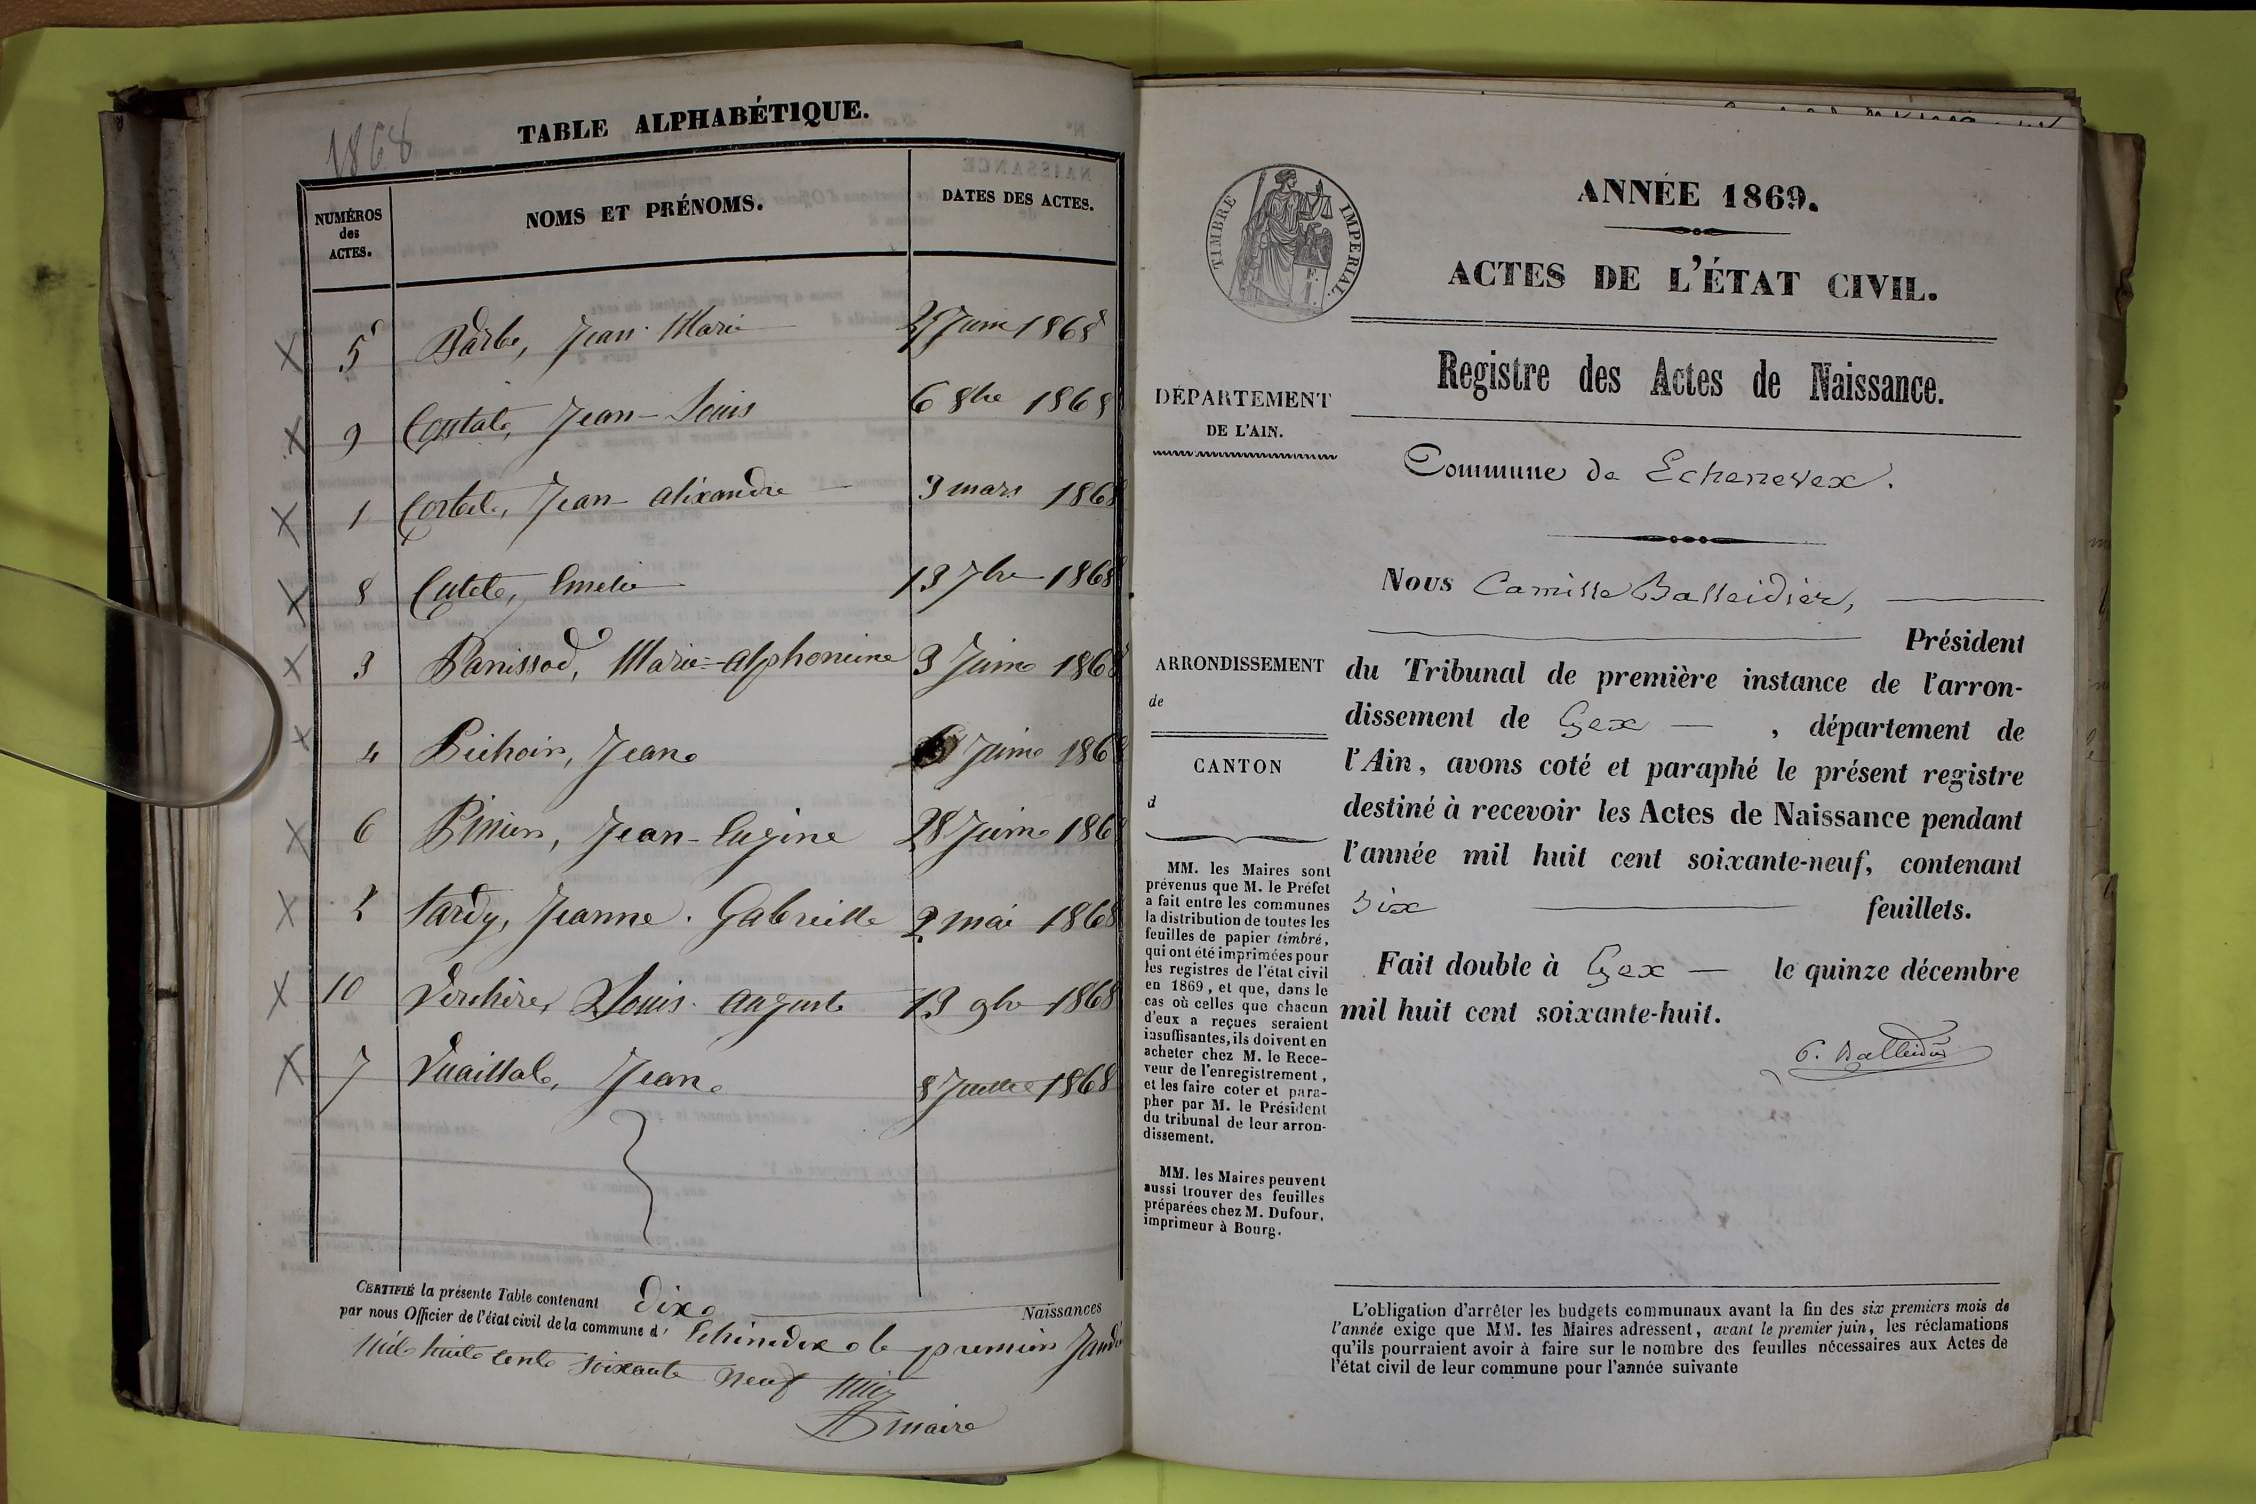 1868
TABLE ALPHABÉTIQUE.
NUMÉROS
des
ACTES.
NOMS ET PRÉNOMS.
DATES DES ACTES.
5 Barbe, Jean Marie 27 Juin 1868
9 Jean-Louis 6 8bre 1868
1 Jean alixandre 3 mars 1868
8 Emélie 13 7bre 1868
3 Panissod, Marie-alphonsine 3 Juin 1868
4 Pichoin, Jean 6 Juin 1868
6 Jean-Eugine 28 Juin 1868
2 tardy, Jeanne. Gabrielle 2 mai 1868
10 Verchère, Louis auguste 13 9bre 1868
7 Jean 8 Juillet 1868
CERTIFIÉ la présente Table contenant dix Naissances
par nous Officier de l'état civil de la commune d' Echenevex le premier Janv
Mil huit cent soixante neuf
maire
TIMBRE IMPERIAL.
ANNÉE 1869.
ACTES DE L'ÉTAT CIVIL.
Registre des Actes de Naissance.
DÉPARTEMENT
DE L'AIN.
Commune de Echenevex.
Nous Camille Balleidier,
Président
ARRONDISSEMENT
de
CANTON
d
du Tribunal de première instance de l'arron-
dissement de Gex — , département de
l'Ain, avons coté et paraphé le présent registre
destiné à recevoir les Actes de Naissance pendant
l'année mil huit cent soixante-neuf, contenant
six feuillets.
Fait double à Gex — le quinze décembre
mil huit cent soixante-huit.
C. Balleidier
MM. les Maires sont
prévenus que M. le Préfet
a fait entre les communes
la distribution de toutes les
feuilles de papier timbré,
qui ont été imprimées pour
les registres de l'état civil
en 1869, et que, dans le
cas où celles que chacun
d'eux a reçues seraient
insuffisantes, ils doivent en
acheter chez M. le Rece-
veur de l'enregistrement,
et les faire coter et para-
pher par M. le Président
du tribunal de leur arron-
dissement.
MM. les Maires peuvent
aussi trouver des feuilles
préparées chez M. Dufour,
imprimeur à Bourg.
L'obligation d'arrêter les budgets communaux avant la fin des six premiers mois de
l'année exige que MM. les Maires adressent, avant le premier juin, les réclamations
qu'ils pourraient avoir à faire sur le nombre des feuilles nécessaires aux Actes de
l'état civil de leur commune pour l'année suivante